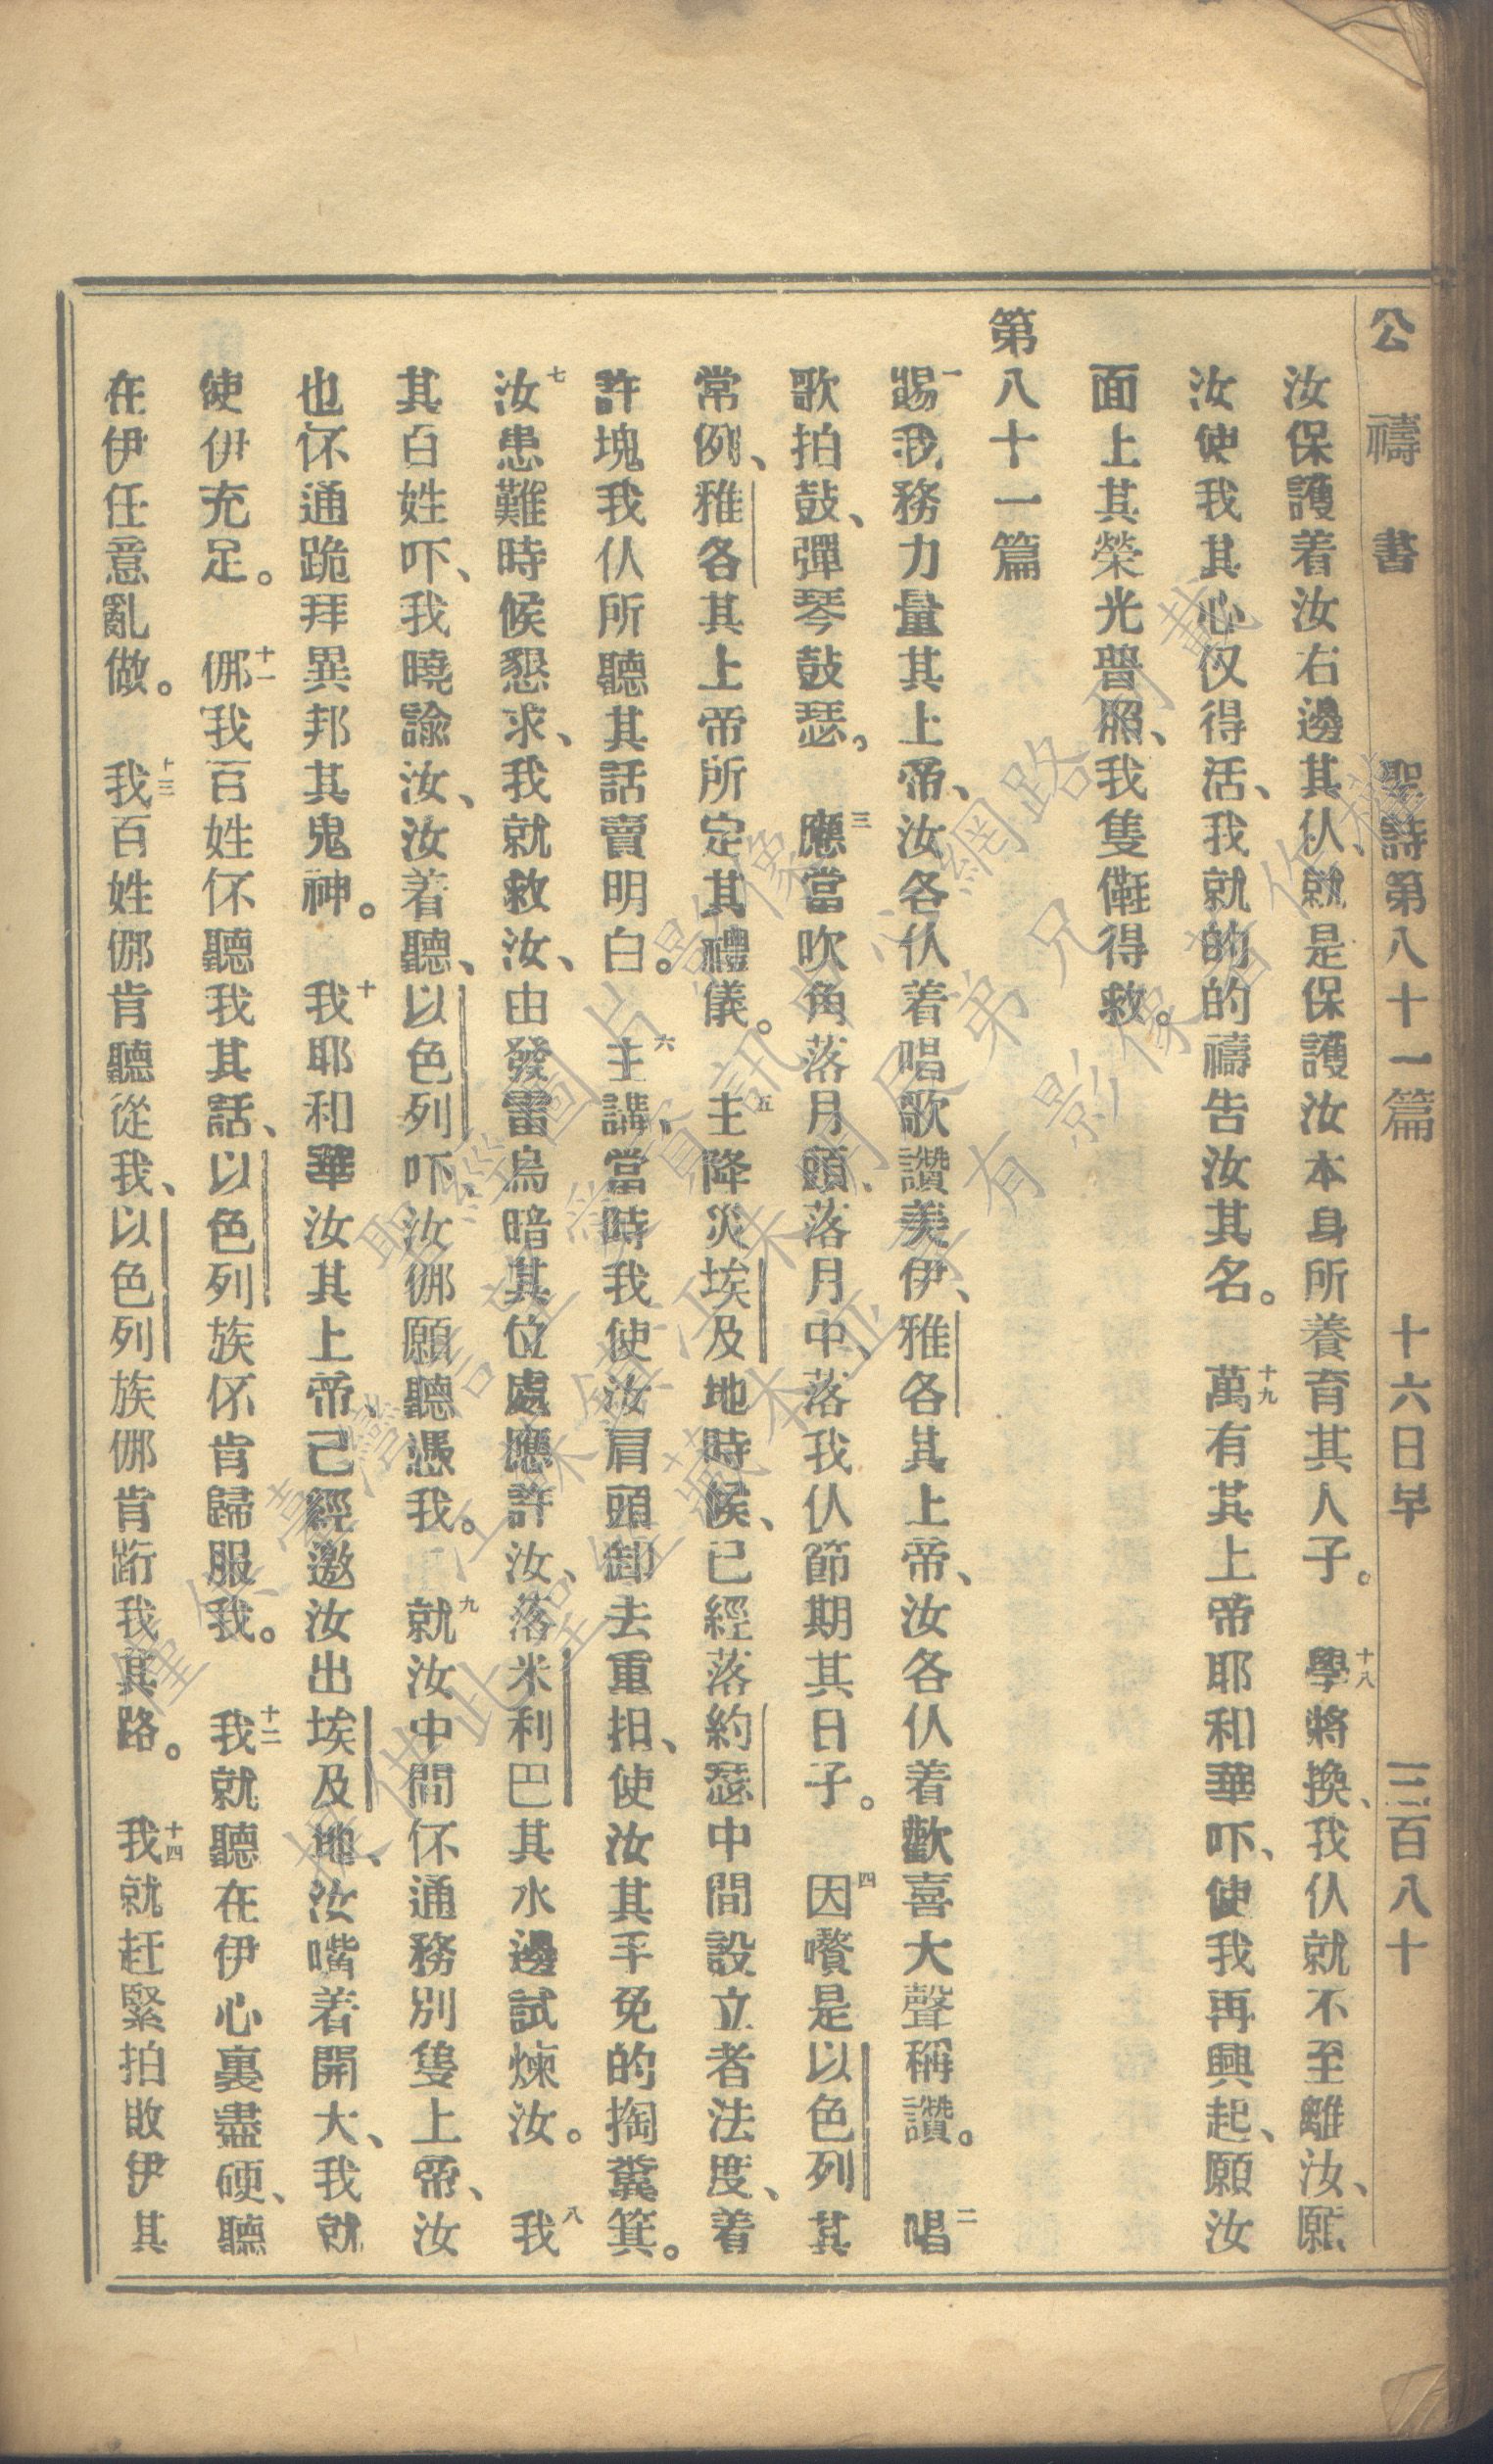 公禱書　聖詩第八十一篇　十六日早　三百八十
汝保護着汝右邊其仈、就是保護汝本身所養育其人子。十八學將換、我仈就不至離汝、願
汝使我其心仅得活、我就的的禱告汝其名。十九萬有其上帝耶和華吓、使我再興起、願汝
面上其榮光普照、我隻儺得救。
第八十一篇
一賜我務力量其上帝、汝各仈着唱歌讚美伊、雅各其上帝、汝各仈着歡喜大聲稱讚。二唱
歌拍鼓、彈琴鼓瑟。三應當吹角落月頭、落月中、落我仈節期其日子。四因嚽是以色列其
常例、雅各其上帝所定其禮儀。五主降災埃及地時候、已經落約瑟中間設立者法度、着
許塊我仈所聽其話賣明白。六主講、當時我使汝肩頭卸去重担、使汝其手免的掏糞箕。
七汝患難時候懇求、我就救汝、由發雷烏暗其位處應許汝、落米利巴其水邊試煉汝。八我
其百姓吓、我曉諭汝、汝着聽、以色列吓、汝㑚願聽憑我。九就汝中間伓通務別隻上帝、汝
也伓通跪拜異邦其鬼神。十我耶和華汝其上帝、己經邀汝出埃及地、汝嘴着開大、我就
使伊充足。十一㑚我百姓伓聽我其話、以色列族伓肯歸服我。十二我就聽在伊心裏盡硬、聽
在伊任意亂做。十三我百姓㑚肯聽從我、以色列族㑚肯䟓我其路。十四我就赶緊拍敗伊其